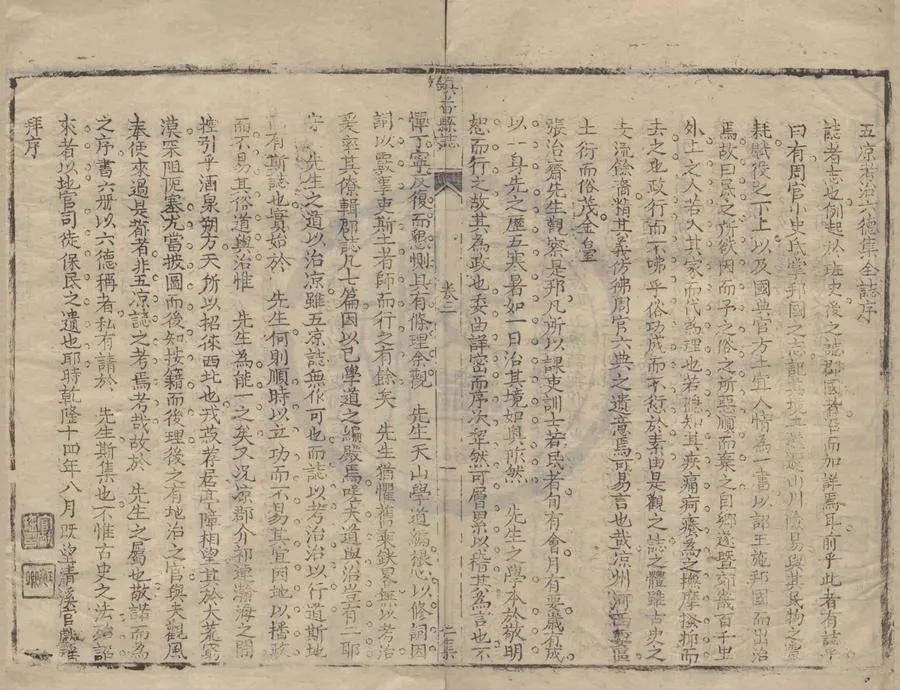 五凉考治六德集全誌序
誌者志也例起於班史後之誌郡國者因而加詳焉耳前乎此者有誌乎
曰有周官小史氏掌邦國之志記其境土山川險易與其民物之豐
耗賦役之下上以及國典官方土宜人情為一書以詔王施邦國而出治
焉故曰民之所欲因而子之俗之所惡順而棄之自鄉遂暨郊畿百千里
外上之人若入其家而代為理也若聽知其疾痛疴癢為之撫摩搔抑而
去之也政行而不咈乎俗功成而不愆於素由是觀之誌之體雖古史之
支流餘裔精其義仿彿周官六典之遺意焉可易言也哉凉州河西奧區
土衍而俗茂金皇
張治齋先生觀察是邦凡所以課吏訓士若民者旬有會月有要歲有成
以一身先之歷五寒暑如一日治其境如與粥然 先生之學本於敬明
恕而行之故其為政也委曲詳密而序次犂然可層累以稽其為言也不
憚丁寧反復而懇惻具有條理余觀 先生天山學道編根心以修詞因
詞以覈事吏斯土者師而行之有餘矣 先生猶懼舊乘鈌畧無以考治
爰率其僚輯郡誌凡七篇因以己學道之編殿焉嗟夫道與治豈有二耶
守 先生之道以治凉雖五凉誌無作可也而誌以考治治以行道斯地
有斯誌也實始於 先生何則順時以立功而不易其宜因地以播政
而不易其俗道與治惟 先生為能一之矣又况凉郡介祁連瀚海之間
控引乎酒泉朔方天所以招徠西北也戎茷荐居亭障相望其於大荒窮
漠罙阻阨塞尤當披圖而後知按籍而後理後之有地治之官與夫觀風
奉使來過是都者非五凉誌之考焉考哉故於 先生之屬也敬諾而為
之序書六册以六德稱者私有請於 先生斯集也不惟古史之法
來者以地官司徒保民之遺也耶時乾隆十四年八月既望清溪官獻瑤
拜序
鎮番縣誌
卷三
一
二集